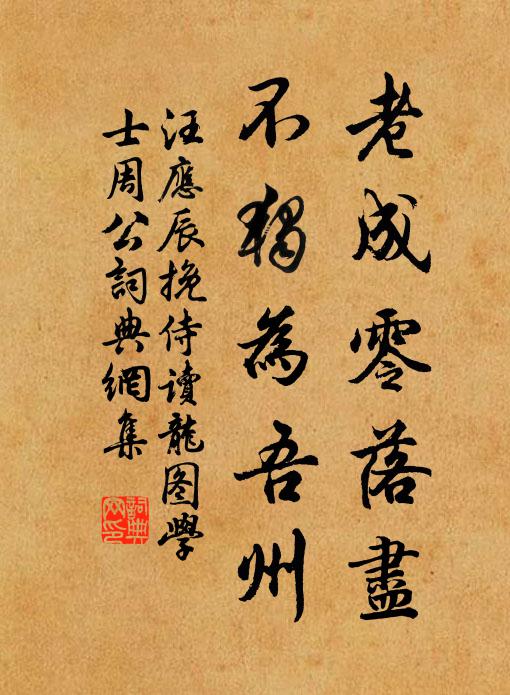 老成零落盡
不獨為吾州
汪應辰挽侍讀龍图學
士周公詞典網集
詞典
网印